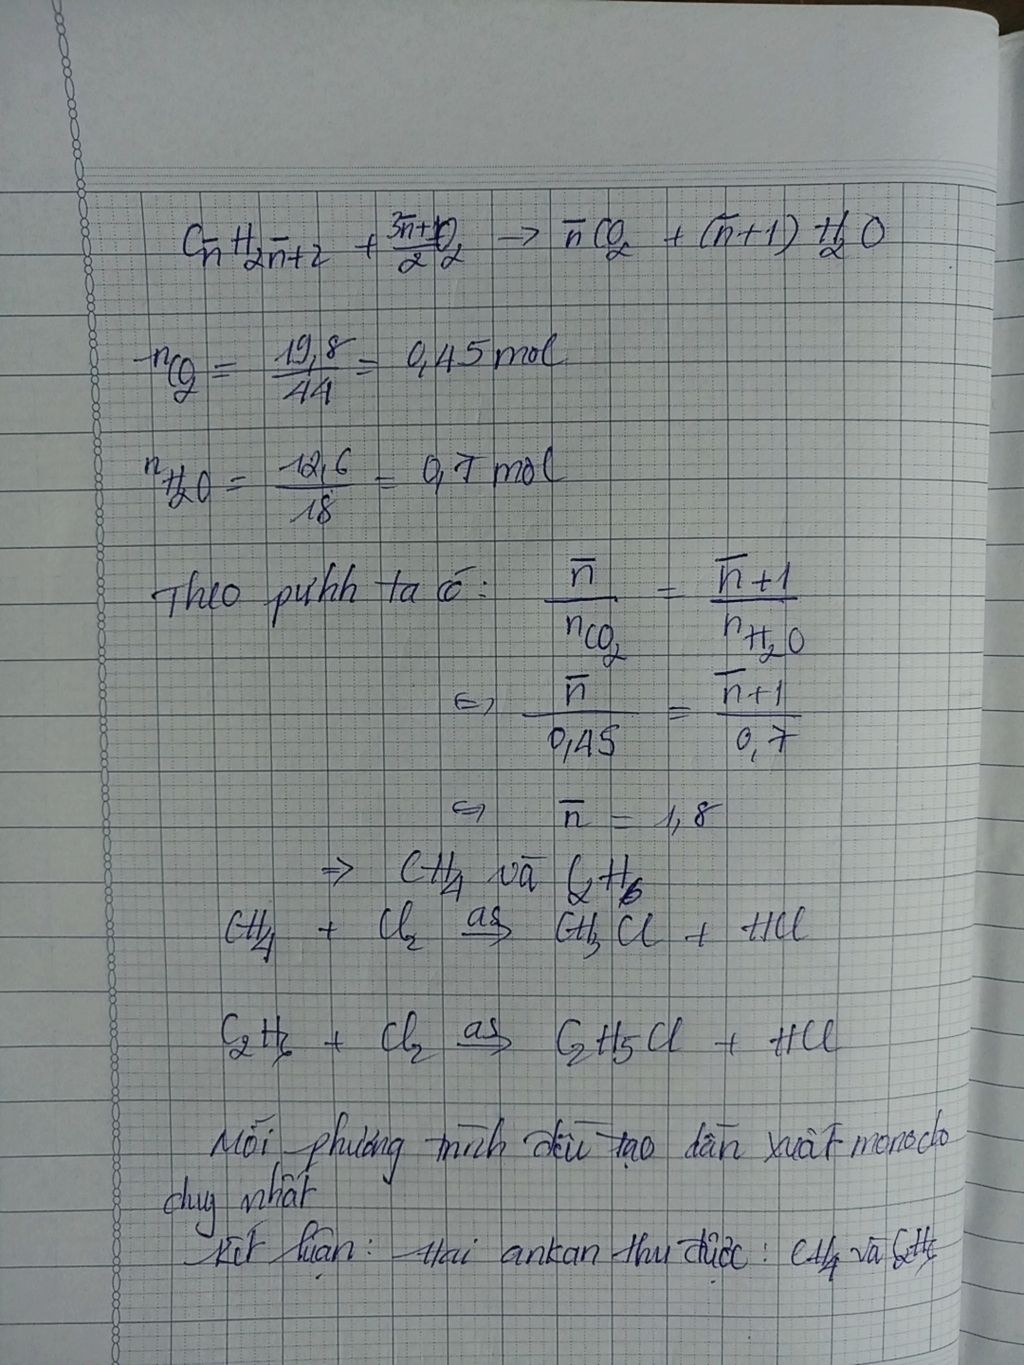 C_n̄ H_2n̄+2 + (3n̄+1)/2 O₂ → n̄ CO₂ + (n̄+1) H₂O
nCO₂ = 19,8/44 = 0,45 mol
nH₂O = 12,6/18 = 0,7 mol
Theo pthh ta có: n̄/nCO₂ = (n̄+1)/nH₂O
⇔ n̄/0,45 = (n̄+1)/0,7
⇔ n̄ = 1,8
⇒ CH₄ và C₂H₆
CH₄ + Cl₂ as→ CH₃Cl + HCl
C₂H₆ + Cl₂ as→ C₂H₅Cl + HCl
Mỗi phương trình đều tạo dẫn xuất monoclo
duy nhất
Kết luận: Hai ankan thu được: CH₄ và C₂H₆